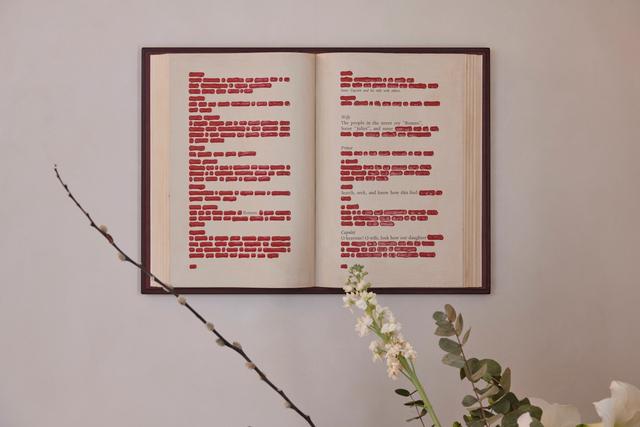 Romeo
Enter Capulet and his wife with others
Wife
The people in the street cry "Romeo",
Some "Juliet", and some
Prince
Search, seek, and know how this foul
Capulet
O heavens! O wife, look how our daughter